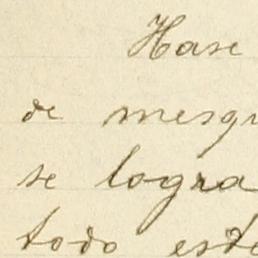 Hase
de mesqu
se logra
todo este